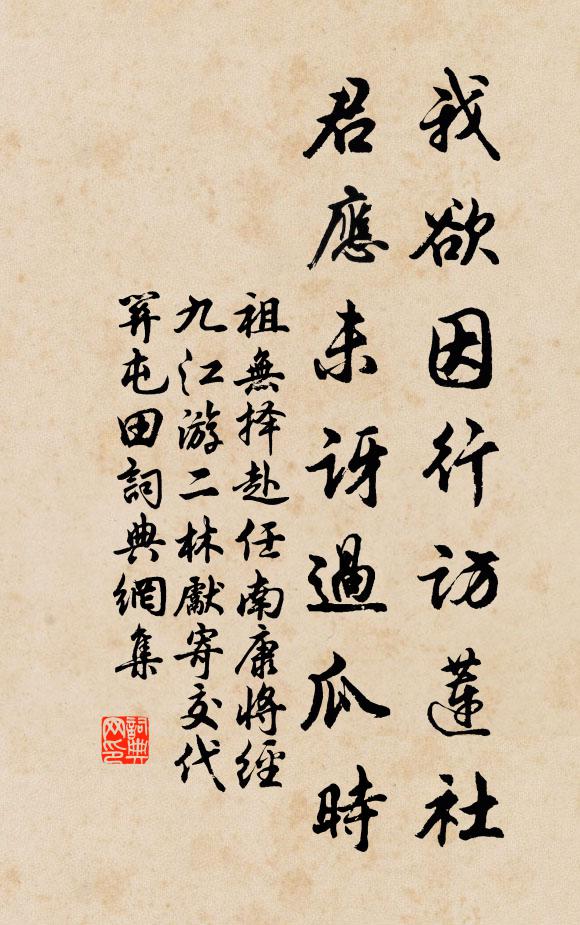 我欲因行訪蓮社
君應未訝過瓜時
祖無择赴任南康將經
九江游二林獻寄交代
羿屯田詞典網集
詞典
网印